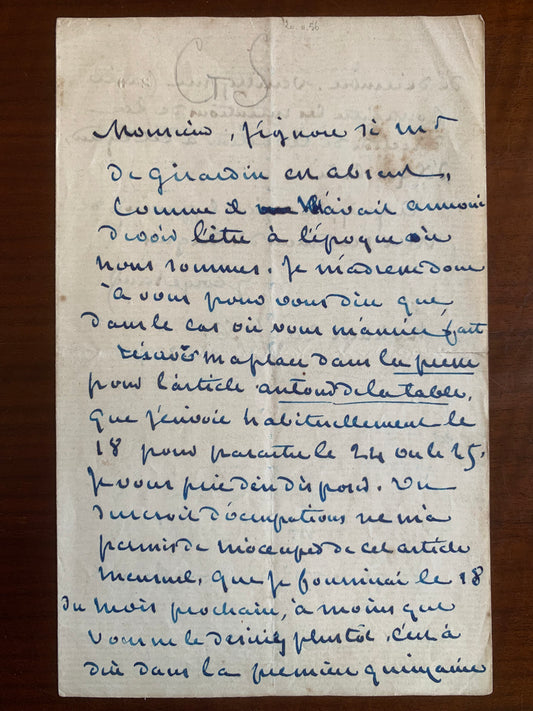 Monsieur, J'ignore si Mr
de Girardin est absent,
comme il m'avait annoncé
devoir l'être à l'époque où
nous sommes. Je m'adresse donc
à vous pour vous dire que
dans le cas où vous m'auriez fait
réserver ma place dans la presse
pour l'article autour de la table,
que j'envoie habituellement le
18 pour paraître le 24 ou le 25.
Je vous prie d'en disposer. Un
surcroit d'occupations ne m'a
permis de m'occuper de cet article
mensuel, que je fournirai le 18
du mois prochain, à moins que
vous ne le désiriez plustôt, c'est à
dire dans la première quinzaine